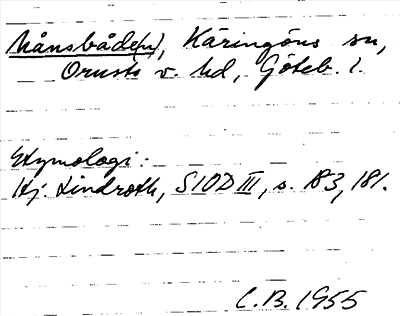 Månsbåde(n), Käringöns sn,
Orusts v. hd, Göteb. l.
Etymologi:
Hj. Lindroth, SIOD III, s. 183, 181.
C.B. 1955